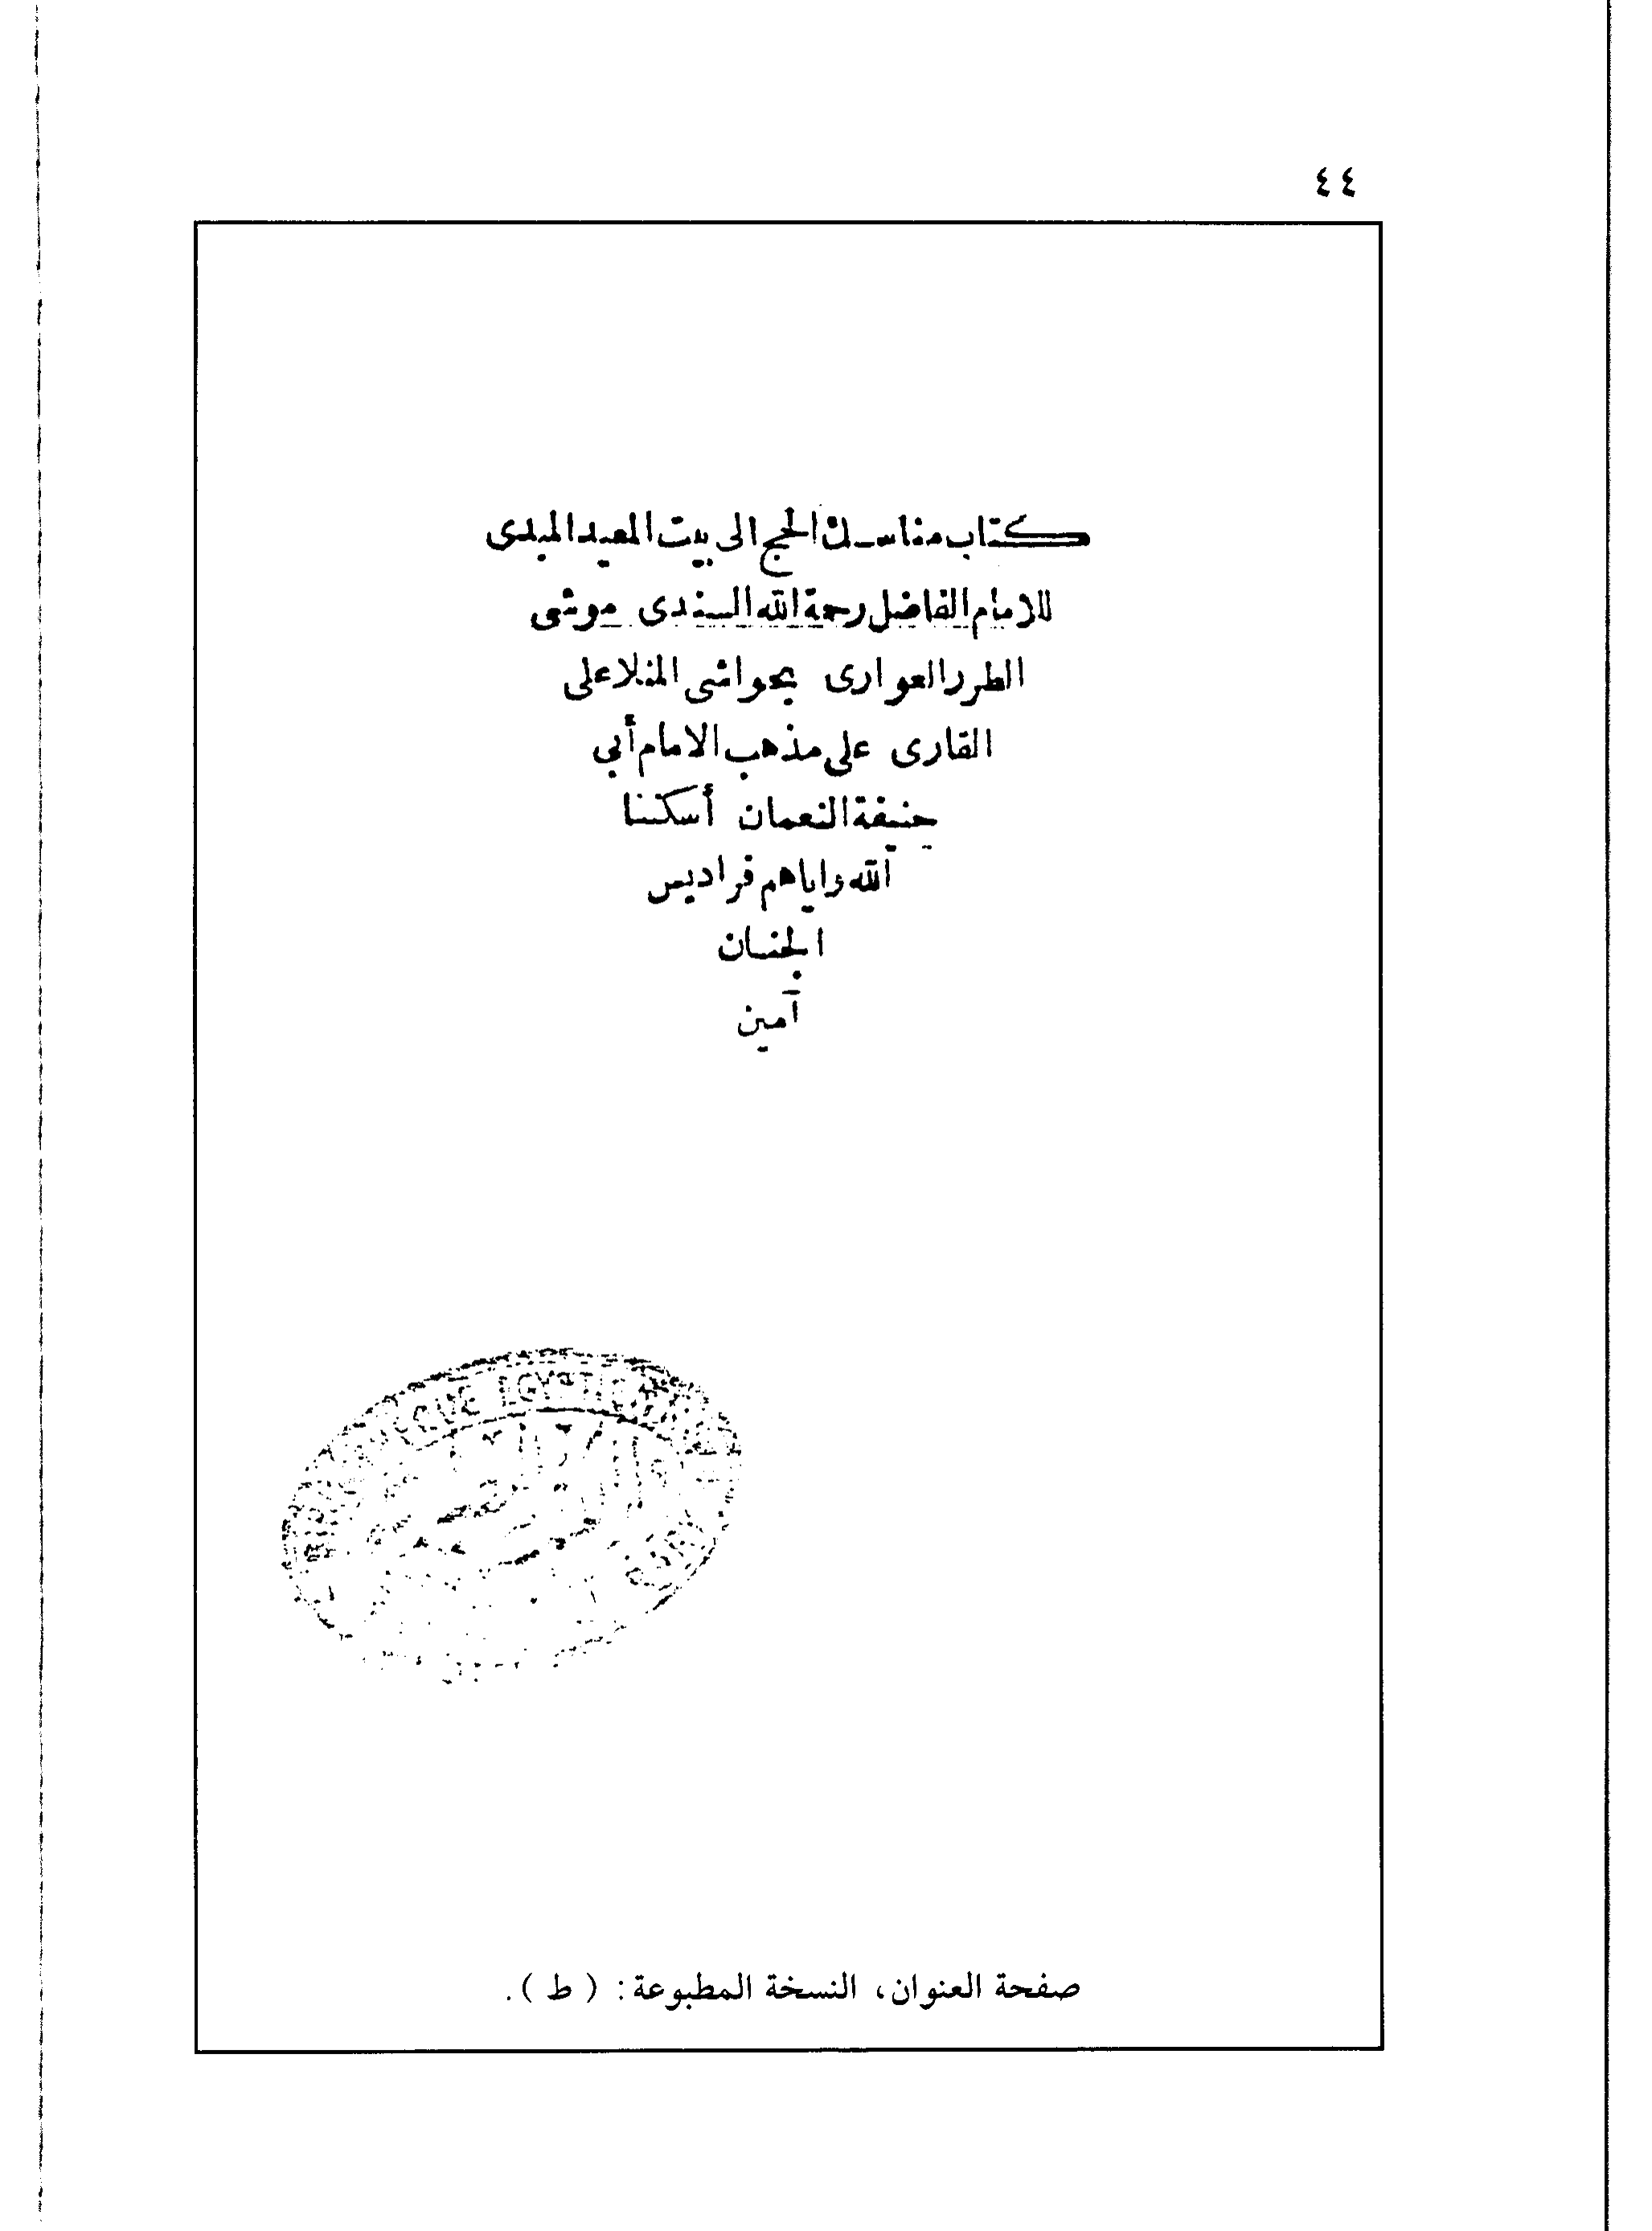 ٤٤
كتاب مناسك الحج الى بيت المعيد المبدى
للامام الفاضل رحمة الله السندى موشى
الطرر العوارى بحواشى المنلا على
القارى على مذهب الامام أبى
حنيفة النعمان أسكننا
الله واياهم فراديس
الجنان
آمين
EGYPT
صفحة العنوان، النسخة المطبوعة: ( ط ).